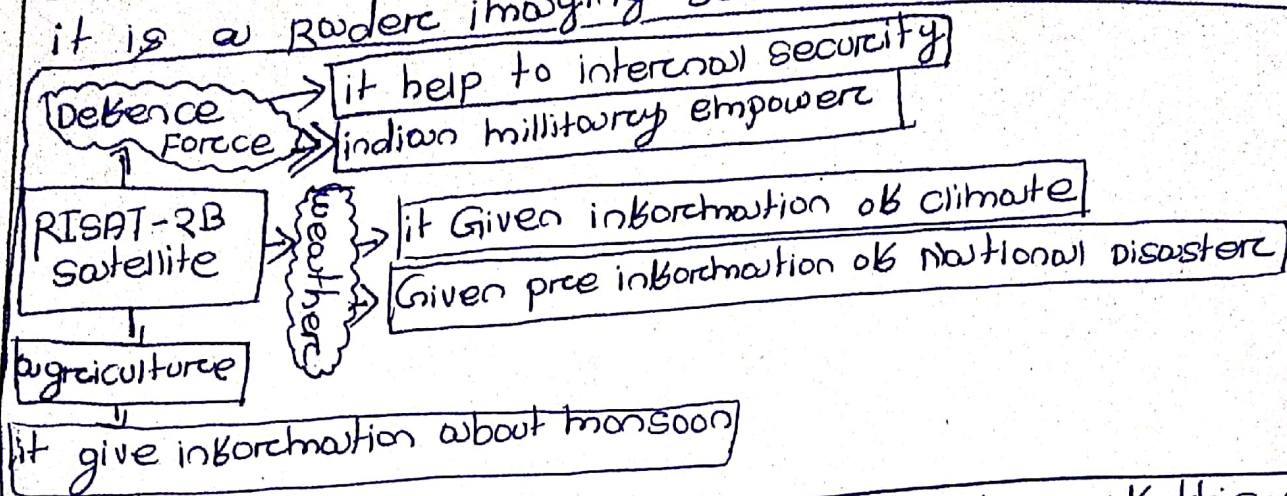 it is a Radar imaging
Defence
Force
it help to internal security
indian millitary empower
RISAT-2B
Satellite
Weather
it Given information of climate
Given pre information of National Disaster
agriculture
it give information about monsoon